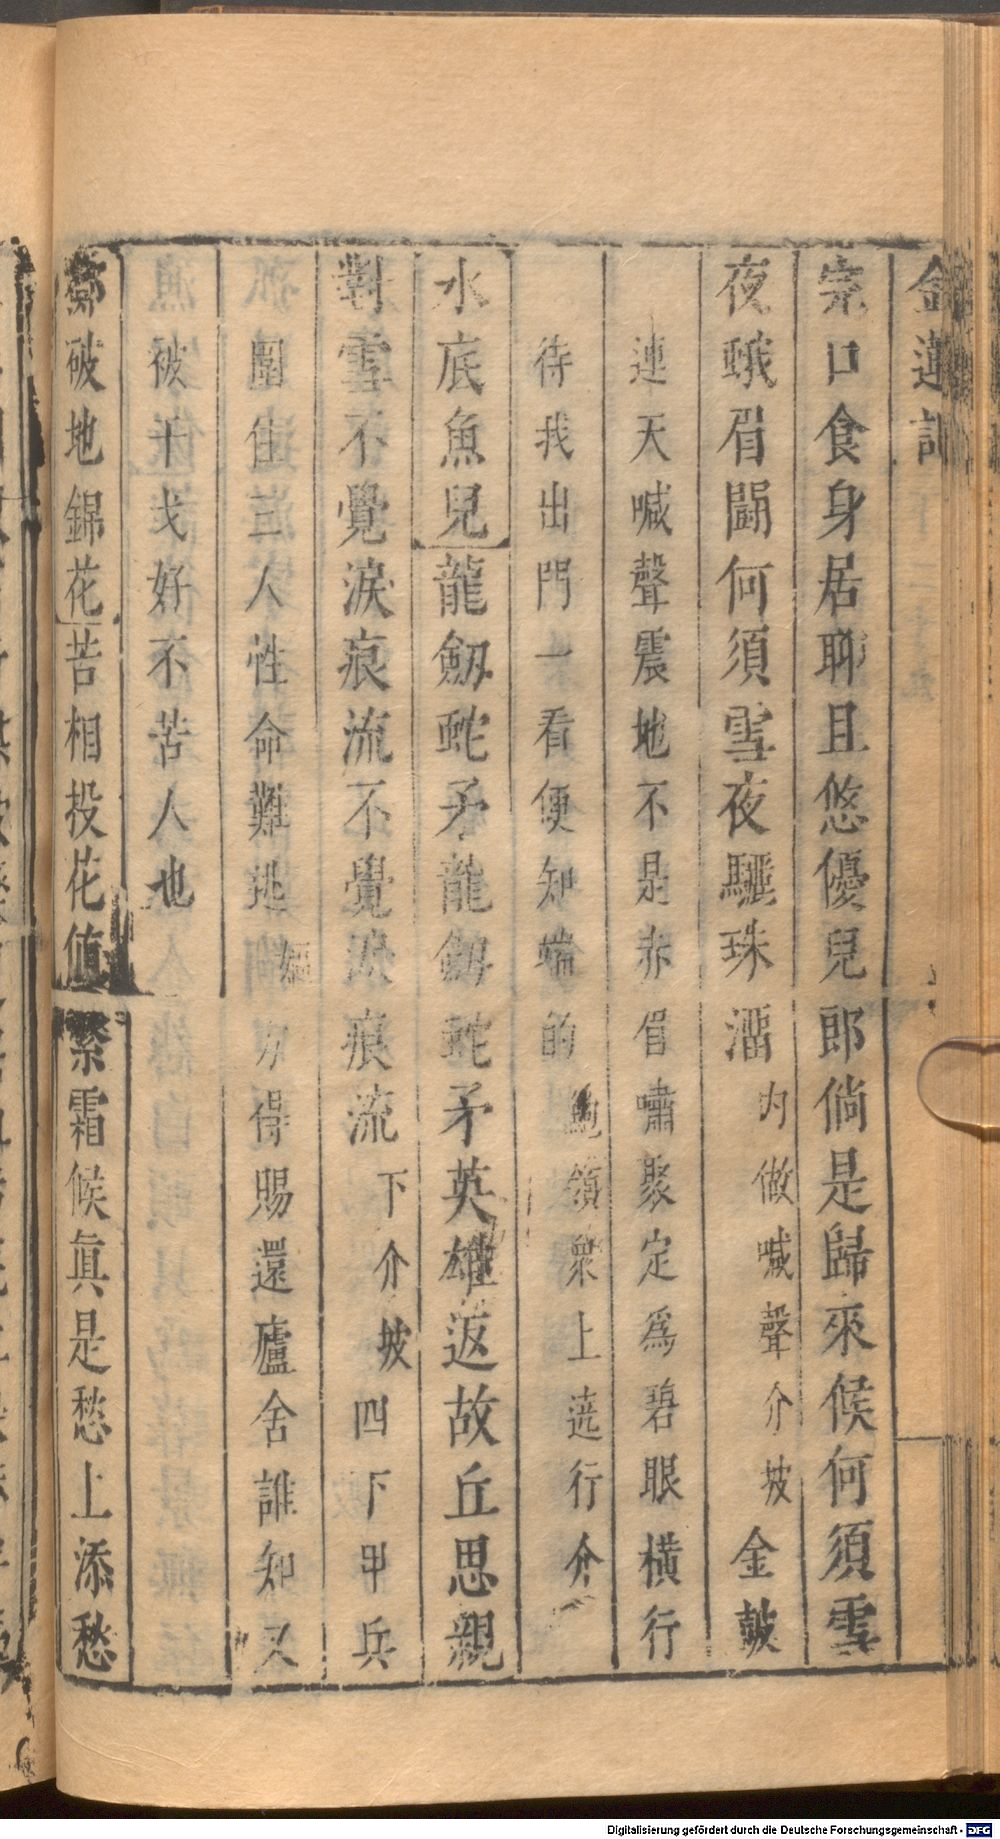 金蓮記
宗口食身居聊且悠優兒郎倘是歸來候何須雪
夜蛾眉鬪何須雪夜驪珠溜内做喊聲介坡金鼓
連天喊聲震地不是赤眉嘯聚定爲碧眼横行
待我出門一看便知端的鮑領衆上遶行介
水底魚兒龍劒蛇矛龍劒蛇矛英雄返故丘思親
對雪不覺淚痕流不覺淚痕流下介坡四下甲兵
圍住三人性命難逃方得賜還廬舍誰知又
被干戈好不苦人也
破地錦花苦相投花值繁霜候眞是愁上添愁
Digitalisierung gefördert durch die Deutsche Forschungsgemeinschaft - DFG